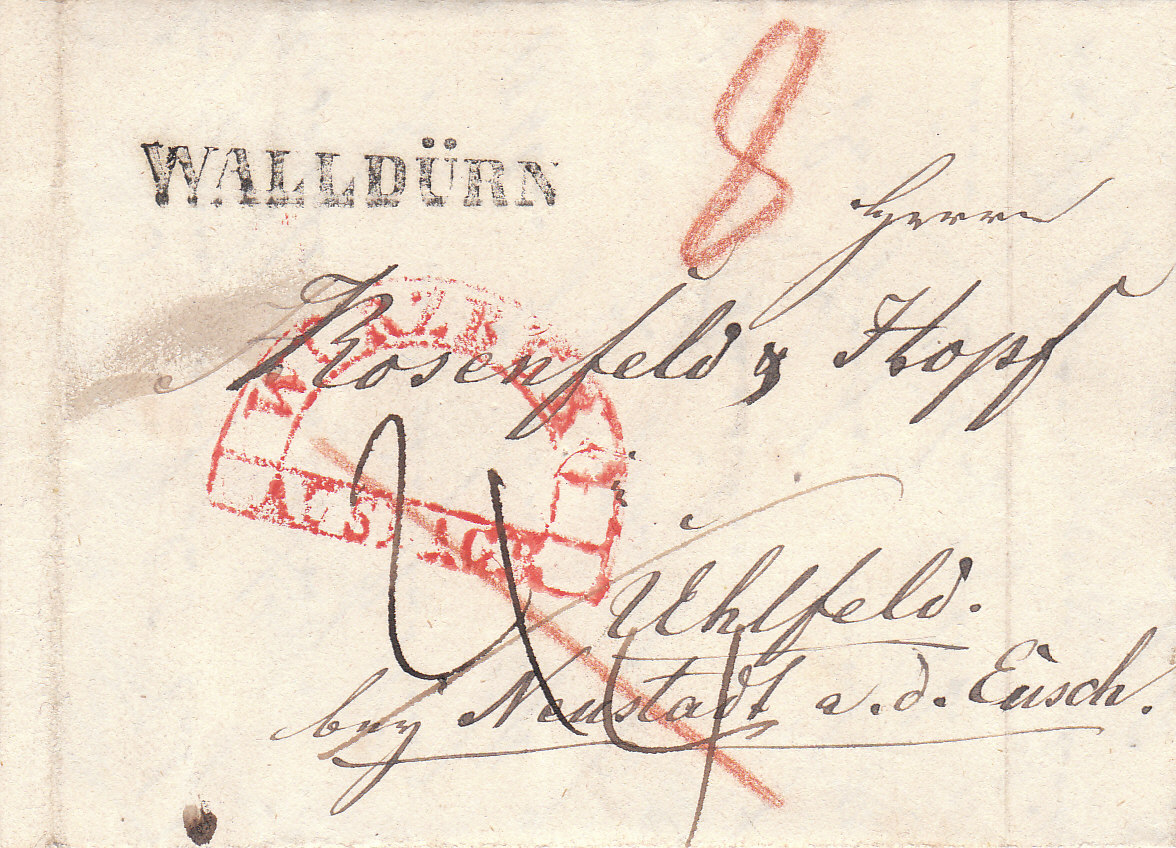 8
WALLDÜRN
Herrn
Rosenfeld & Hopf
Uhlfeld.
bey Neustadt a. d. Eusch.